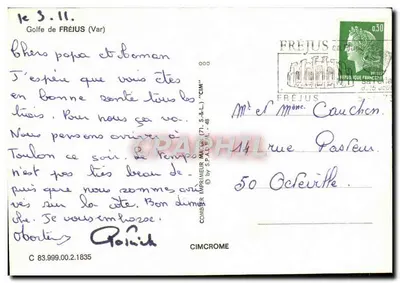 le 3.11.
Golfe de FRÉJUS (Var)
Chers papa et maman
J'espère que vous êtes
en bonne santé tous les
trois. Pour nous ça va.
Nous pensons arriver à
Toulon ce soir. Le temps
n'est pas très beau de-
puis que nous sommes arri
vés sur la côte. Bon diman
che. Je vous embrasse.
Patrick
C 83.999.00.2.1835
CIMCROME
COMBIER IMPRIMEUR MACON (71, S.-&-L.) "CIM"
© by S.P.A.D.E.M.
FREJUS
FREJUS
0,30
REPUBLIQUE FRANCAISE
Mr et Mme Cauchon
14 rue Pasteur
50 Octeville